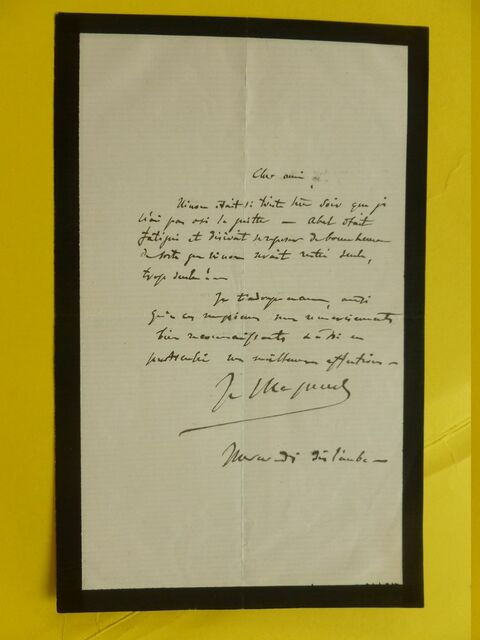 Cher ami,
Ninon était si triste hier soir que je
n'ai pas osé la quitter — Abel était
fatigué et désirait se reposer de bonne heure
de sorte que Ninon serait restée seule,
trop seule! —
Je t'adresse aussi
qu'à ces messieurs mes remerciements
bien reconnaissants
mes meilleures affections —
Mercredi dès l'aube —